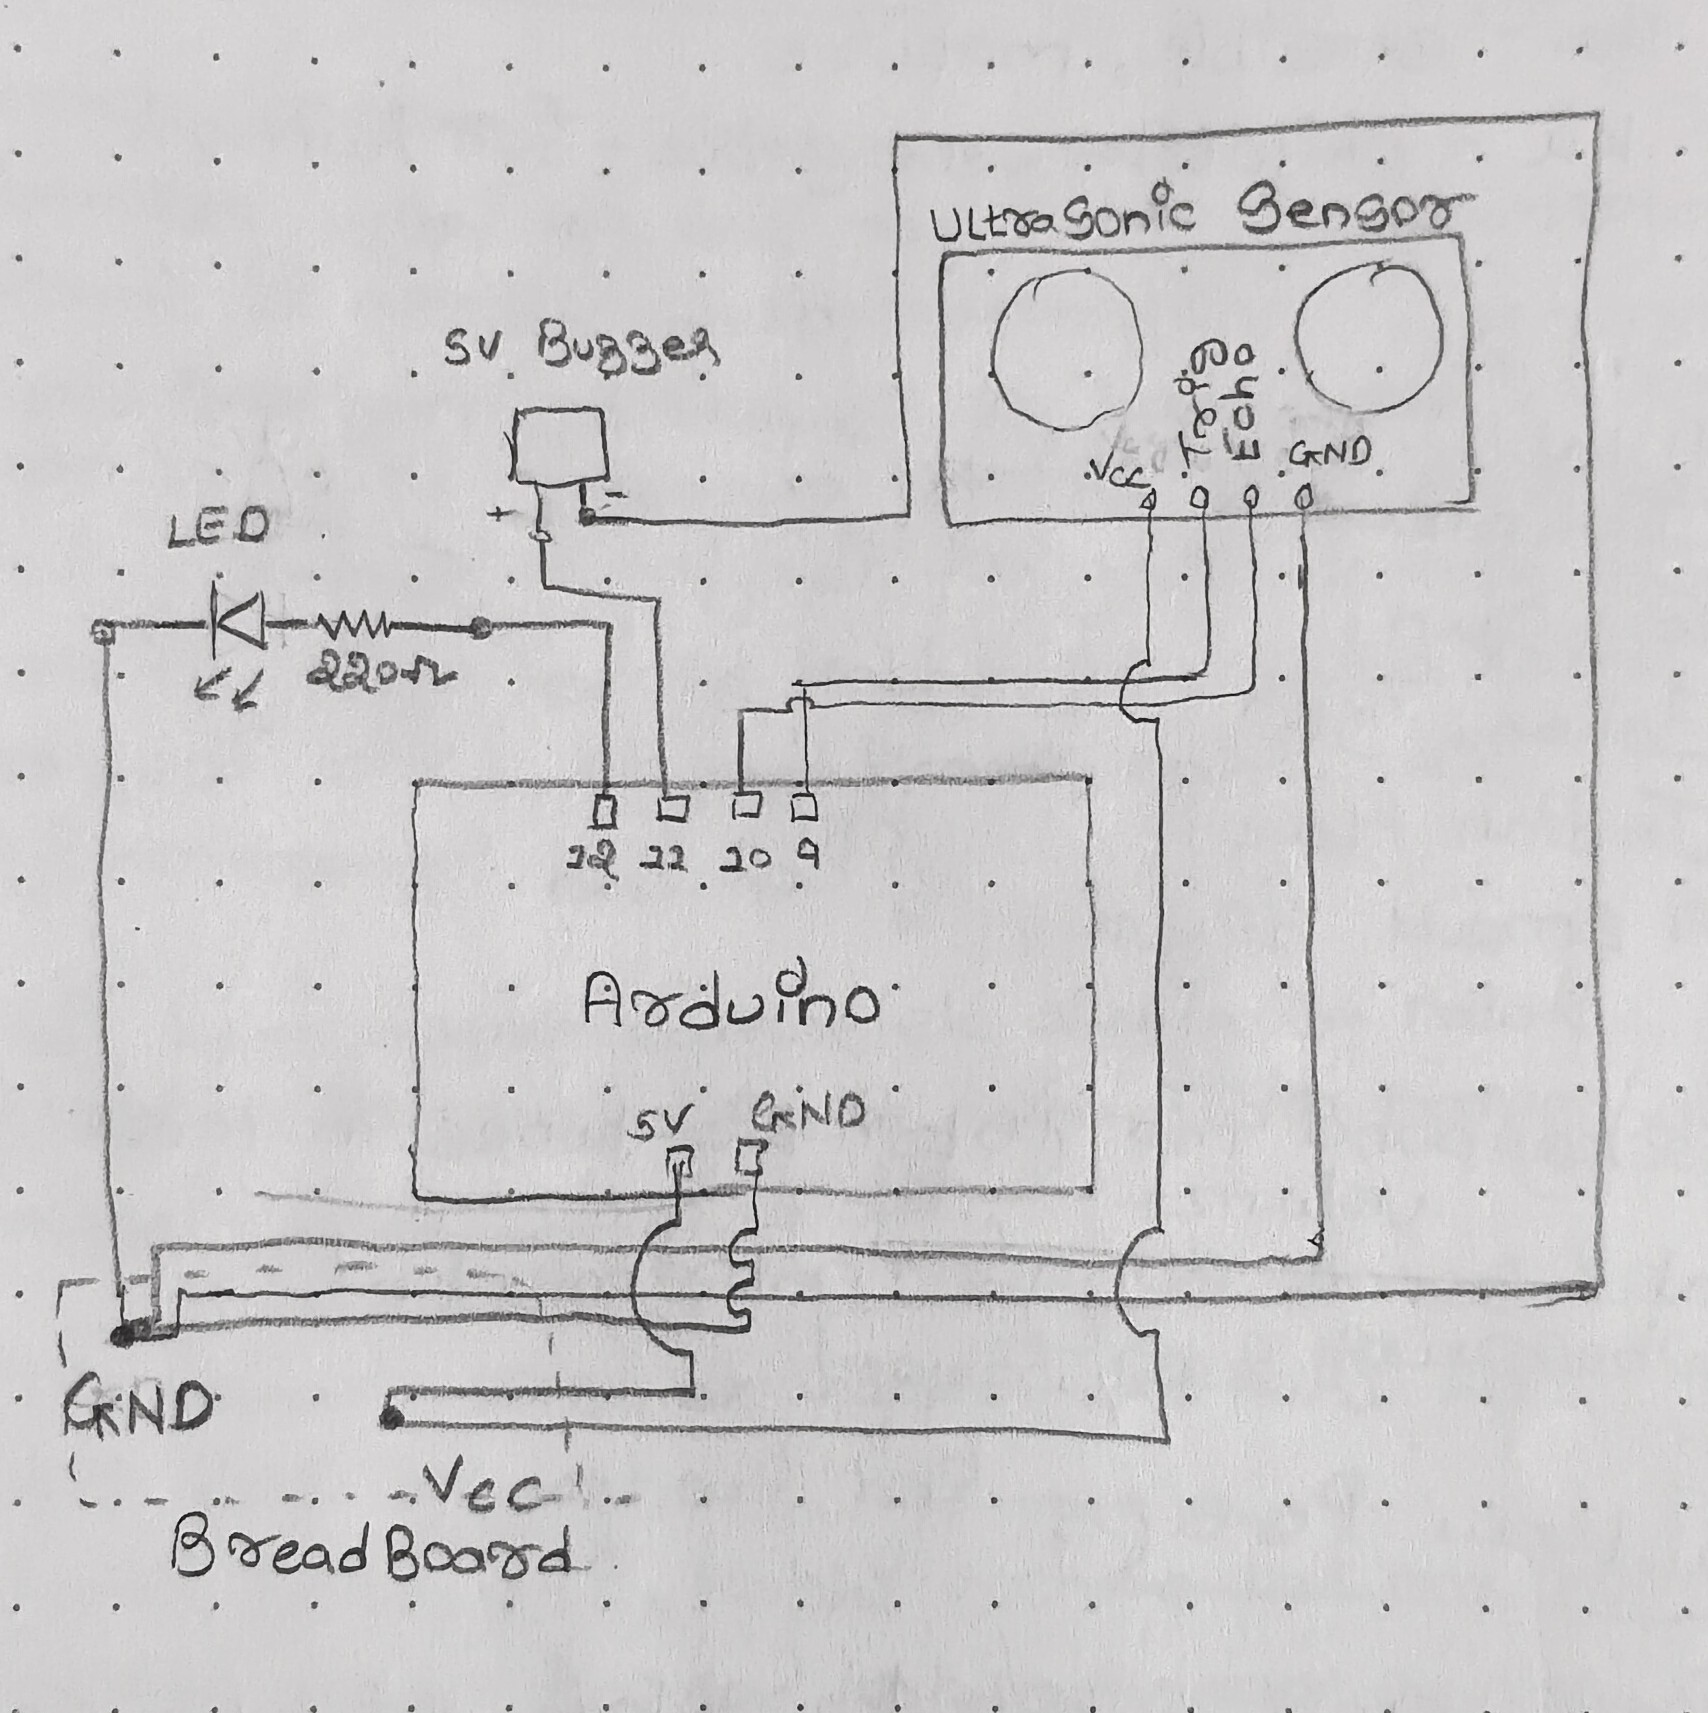 UltraSonic Sensor
5V Buzzer
Trig
Echo
Vcc
GND
+
-
LED
220Ω
12 11 10 9
Arduino
5V GND
GND
Vcc
BreadBoard